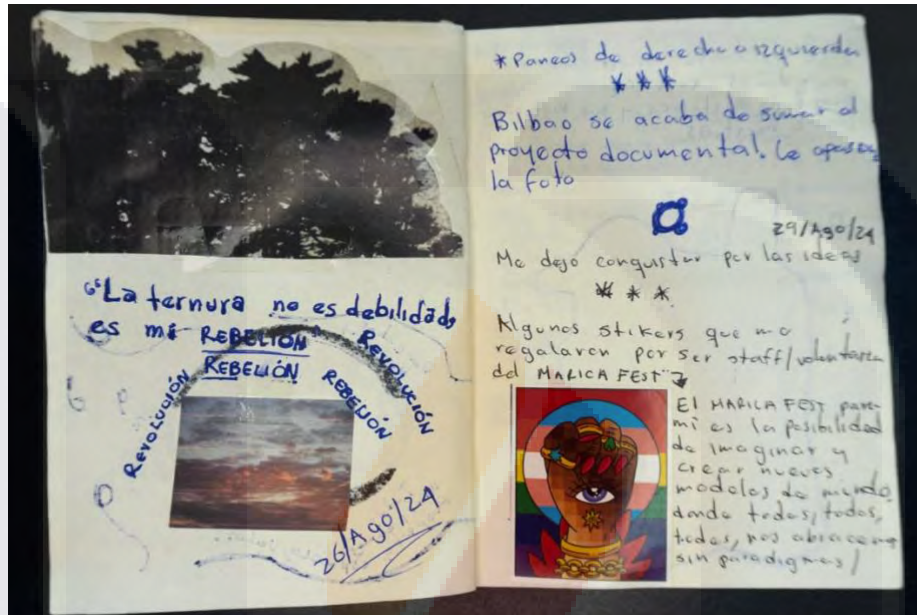 "La ternura no es debilidad,
es mi REBELIÓN
REBELIÓN
REVOLUCIÓN
REBELIÓN
REVOLUCIÓN
26/Ago/24
*Paneos de derecha a izquierda
***
Bilbao se acaba de sumar al
proyecto documental. Le
la foto
29/Ago/24
Me dejo conquistar por las ideas
***
Algunos stikers que me
regalaron por ser staff/voluntaria
del MARICA FEST
El MARICA FEST para
mi es la posibilidad
de imaginar y
crear nuevos
modelos de mundo,
donde todos, todas,
todes, nos abracemos
sin paradigmas/